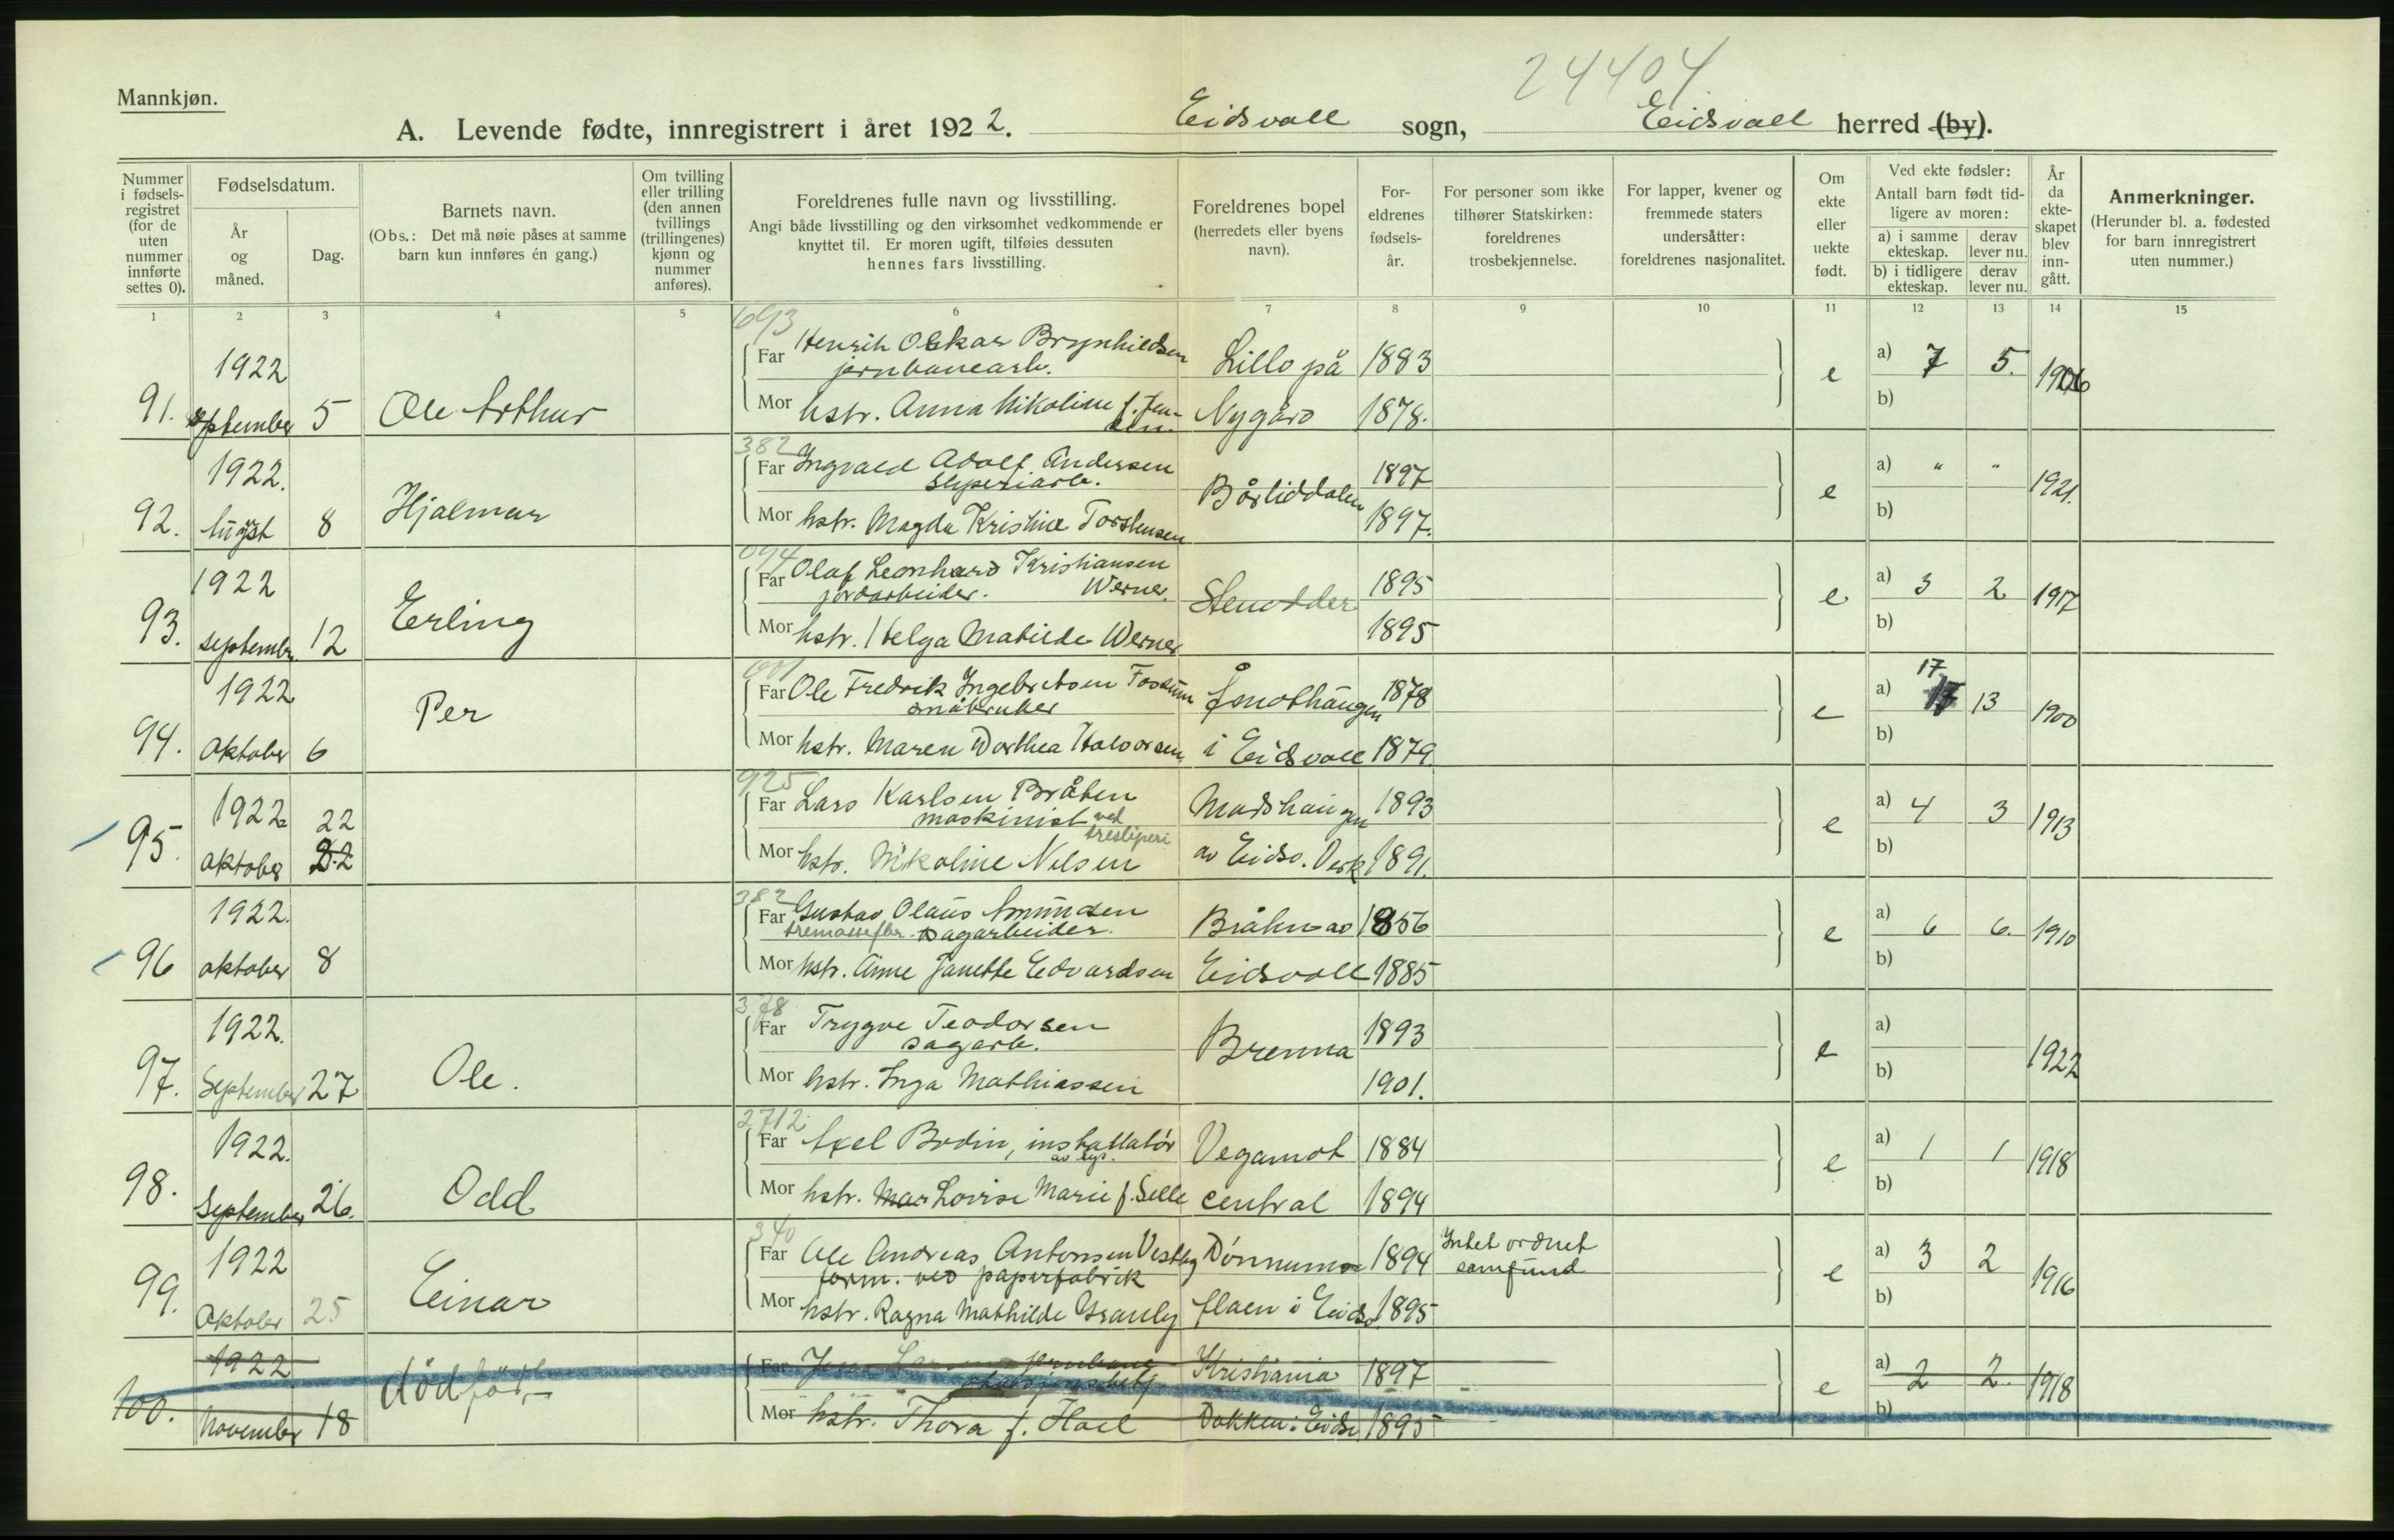 24404
Mannkjøn.
A. Levende fødte, innregistrert i året 1922. Eidsvall sogn, Eidsvall herred (by).
Nummer i fødselsregistret (for de uten nummer innførte settes 0).
Fødselsdatum.
År og måned.
Dag.
Barnets navn.
(Obs.: Det må nøie påses at samme barn kun innføres én gang.)
Om tvilling eller trilling (den annen tvillings (trillingenes) kjønn og nummer anføres).
Foreldrenes fulle navn og livsstilling.
Angi både livsstilling og den virksomhet vedkommende er knyttet til. Er moren ugift, tilføies dessuten hennes fars livsstilling.
Foreldrenes bopel (herredets eller byens navn).
Foreldrenes fødselsår.
For personer som ikke tilhører Statskirken: foreldrenes trosbekjennelse.
For lapper, kvener og fremmede staters undersåtter: foreldrenes nasjonalitet.
Om ekte eller uekte født.
Ved ekte fødsler:
Antall barn født tidligere av moren:
a) i samme ekteskap. derav lever nu.
b) i tidligere ekteskap. derav lever nu.
År da ekteskapet blev inngått.
Anmerkninger.
(Herunder bl. a. fødested for barn innregistrert uten nummer.)
1 2 3 4 5 6 7 8 9 10 11 12 13 14 15
693
1922 Far Henrik Oskar Brynhildsen Lillo på 1883 a) 7 5.
jernbanearb. e 1906
91. september 5 Ole Arthur Mor hstr. Anna Nikoline f. Jensen. Nygård 1878. b)
382
1922. Far Ingvald Adolf Andersen 1897 a) " "
sliperiarb. Bårliddalen e 1921.
92. August 8 Hjalmar Mor hstr. Magda Kristine Torstensen 1897. b)
094
1922 Far Olaf Leonhard Kristiansen 1895 a) 3 2
jordarbeider. Werner. Stenodder e 1917
93. septembr. 12 Erling Mor hstr. Helga Matilde Werner 1895 b)
001
1922 Far Ole Fredrik Ingebretsen Fossum 1878 a) 17 13
småbruker e 1900
94. Oktober 6 Per Mor hstr. Maren Dorthea Halvorsen i Eidsvoll 1879. b)
925
1922 22 Far Lars Karlsen Bråten Madshaugen 1893 a) 4 3
maskinist ved tresliperi e 1913
95. oktober 22 Mor hstr. Nikoline Nilsen av Eidsv. Verk 1891. b)
382
1922. Far Gustav Olaus Amundsen Bråten av 1856 a) 6 6.
tremassefbr. sagarbeider. e 1910
96 oktober 8 Mor hstr. Anne Janette Edvardsen Eidsvoll 1885 b)
378
1922. Far Trygve Teodorsen 1893 a)
sagarb. Brenna e 1922
97. September 27 Ole. Mor hstr. Inga Mathiassen 1901. b)
2712
1922. Far Axel Bodin, installatør Vegamot 1884 a) 1 1
av lys. e 1918
98. September 26. Odd Mor hstr. Mar Lovise Marie f. Selle central 1894 b)
340
1922 Far Ole Andreas Antonsen Vestby Dønnum 1894 Intet ordnet samfund a) 3 2
form. ved papirfabrik e 1916
99. Oktober 25 Einar Mor hstr. Ragna Mathilde Granly flaen i Eidsv. 1895 b)
1922 dödfödt Far Kristiania 1897 a) 2 2.
e 1918
100. November 18 Mor hstr. Thora f. Hoel Dokken i Eidsv. 1895 b)